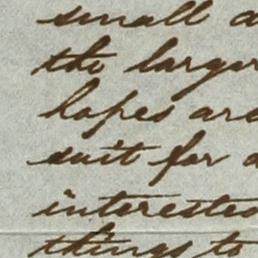 small a
the larger
lopes are
suit for a
interested
things to